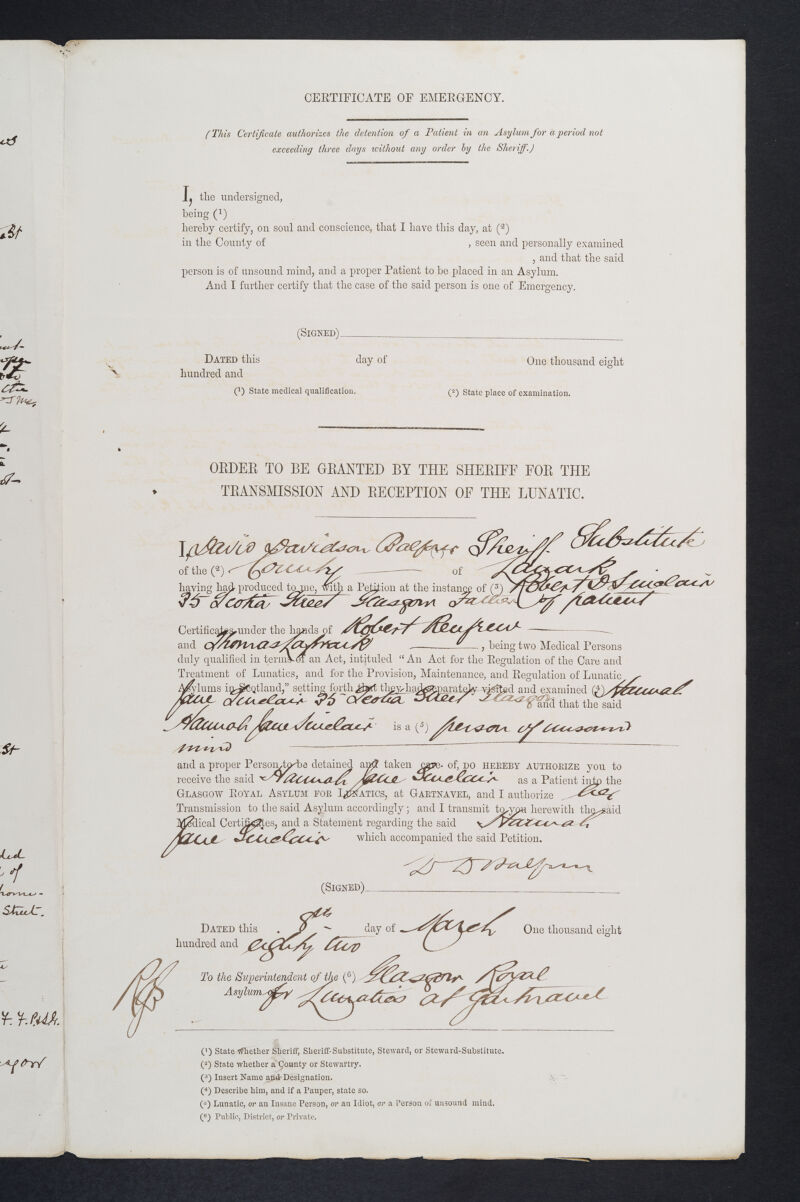 CERTIFICATE OF EMERGENCY.
(This Certificate authorizes the detention of a Patient in an Asylum for a period not
exceeding three days without any order by the Sheriff.)
I, the undersigned,
being (1)
hereby certify, on soul and conscience, that I have this day, at (2)
in the County of , seen and personally examined
, and that the said
person is of unsound mind, and a proper Patient to be placed in an Asylum.
And I further certify that the case of the said person is one of Emergency.
(SIGNED)
DATED this day of One thousand eight
hundred and
(1) State medical qualification. (2) State place of examination.
ORDER TO BE GRANTED BY THE SHERIFF FOR THE
TRANSMISSION AND RECEPTION OF THE LUNATIC.
I, David Davidson Balfour Sheriff Substitute
of the (2) County of Lanark
having had produced to me, with a Petition at the instance of (3) Robert D Sinclair
35 Scotia Street Glasgow Father of patient
Certificates under the hands of Robert Renfrew
and Thomas Lapraik , being two Medical Persons
duly qualified in terms of an Act, intituled "An Act for the Regulation of the Care and
Treatment of Lunatics, and for the Provision, Maintenance, and Regulation of Lunatic
Asylums in Scotland," setting forth that they had separately visited and examined (4) Hannah
Jane Sinclair 35 Scotia Street Glasgow and that the said
Hannah Jane Sinclair is a (5) person of unsound
mind
and a proper Person to be detained and taken care of, DO HEREBY AUTHORIZE you to
receive the said Hannah Jane Sinclair as a Patient into the
GLASGOW ROYAL ASYLUM FOR LUNATICS, at GARTNAVEL, and I authorize her
Transmission to the said Asylum accordingly; and I transmit to you herewith the said
Medical Certificates, and a Statement regarding the said Hannah
Jane Sinclair which accompanied the said Petition.
D D Balfour
(SIGNED)
DATED this 8th day of March One thousand eight
hundred and eighty two
To the Superintendent of the (6) Glasgow Royal
Asylum for Lunatics at Gartnavel
(1) State whether Sheriff, Sheriff-Substitute, Steward, or Steward-Substitute.
(2) State whether a County or Stewartry.
(3) Insert Name and Designation.
(4) Describe him, and if a Pauper, state so.
(5) Lunatic, or an Insane Person, or an Idiot, or a Person of unsound mind.
(6) Public, District, or Private.